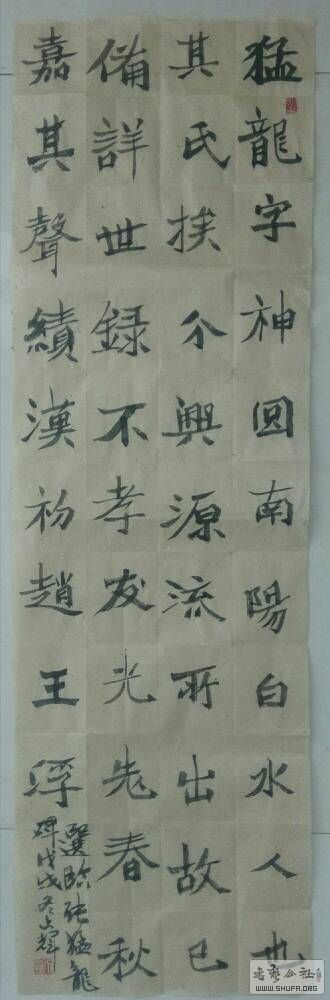 猛龍字神囧南陽白水人也
其氏族分興源流所出故已
備詳世録不孝友光老春秋
嘉其聲績漢初趙王浮
選臨張猛龍
碑戊戌冬輝
書藝公社
WWW.SHUFA.ORG